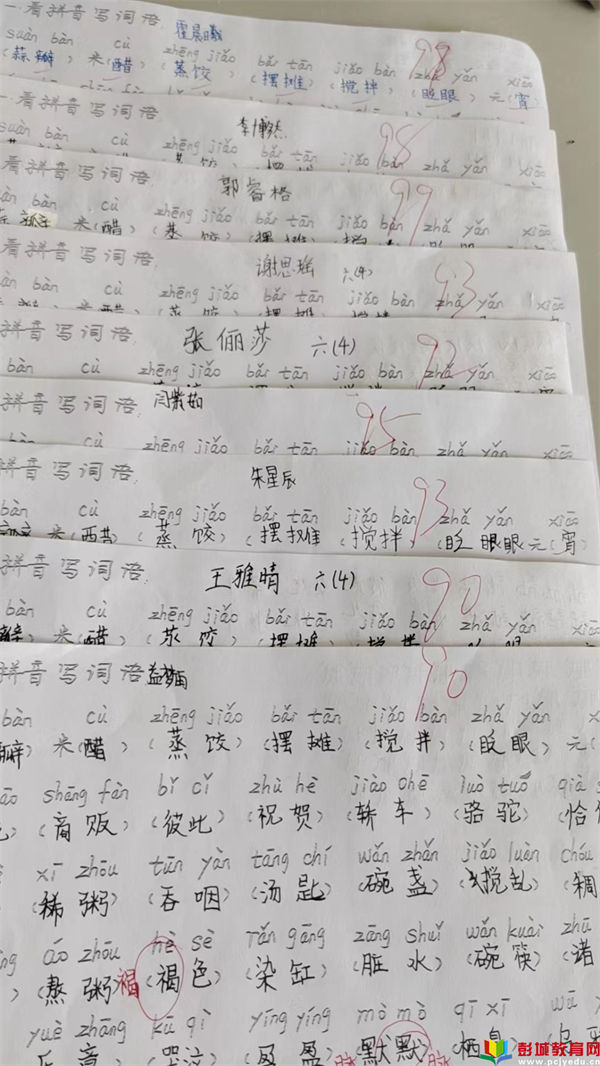 一.看拼音写词语. 霍晨曦 98
suàn bàn cù zhēng jiǎo bǎi tān jiǎo bàn zhǎ yǎn xiāo
(蒜瓣) 米(醋) (蒸饺) (摆摊) (搅拌) (眨眼) 元(宵)
一.看拼音写词语. 98
suàn bàn cù zhēng jiǎo bǎi tān jiǎo bàn zhǎ yǎn
看拼音写词语. 郭睿格 99
bàn cù zhēng jiǎo bǎi tān jiǎo bàn zhǎ yǎn xiāo
米(醋) (蒸饺) (摆摊
看拼音写词语. 谢思瑶 六(4) 93
bàn cù zhēng jiǎo bǎi tān jiǎo bàn zhǎ yǎn xiāo
拼音写词语. 张俪莎 六(4) 92
bàn cù zhēng jiǎo bǎi tān jiǎo bàn zhǎ yǎn xiāo
拼音写词语. 闫紫茹 95
zhēng jiǎo bǎi tān jiǎo bàn zhǎ yǎn xiāo
拼音写词语. 朱星辰 93
bàn cù zhēng jiǎo bǎi tān jiǎo bàn zhǎ yǎn xiāo
米(醋) (蒸饺) (摆摊 (搅拌) (眨眼眼元(宵)
拼音写词语. 王雅晴 六(4) 90
bàn cù zhēng jiǎo bǎi tān jiǎo bàn zhǎ yǎn xiāo
瓣) 米(醋) (蒸饺) (摆摊) (搅拌)
拼音写词语 90
bàn cù zhēng jiǎo bǎi tān jiǎo bàn zhǎ yǎn xiāo
瓣) 米(醋) (蒸饺) (摆摊) (搅拌) (眨眼) 元(
āo shāng fàn bǐ cǐ zhù hè jiào chē luò tuo qià
(商贩) (彼此) (祝贺) (轿车) (骆驼) (恰
xī zhōu tūn yàn tāng chí wǎn zhǎn jiǎo luàn chóu
(稀粥) (吞咽) (汤匙) (碗盏) (搅乱) (稠
áo zhōu hè sè rǎn gāng zāng shuǐ wǎn kuài zhū
(熬粥) 褐 (褐色) (染缸) (脏水) (碗筷) (诸
yuè zhāng kū qì yíng yíng mò mò qī xī
乐章 哭泣 盈盈 (默默) 栖息
彭城教育网
www.pcjyedu.cn